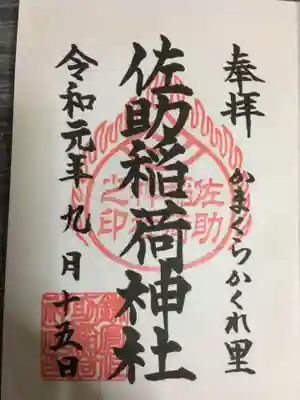 奉拝
かまくらかくれ里
佐助稲荷神社
令和元年九月十五日
佐助稲荷神社之印